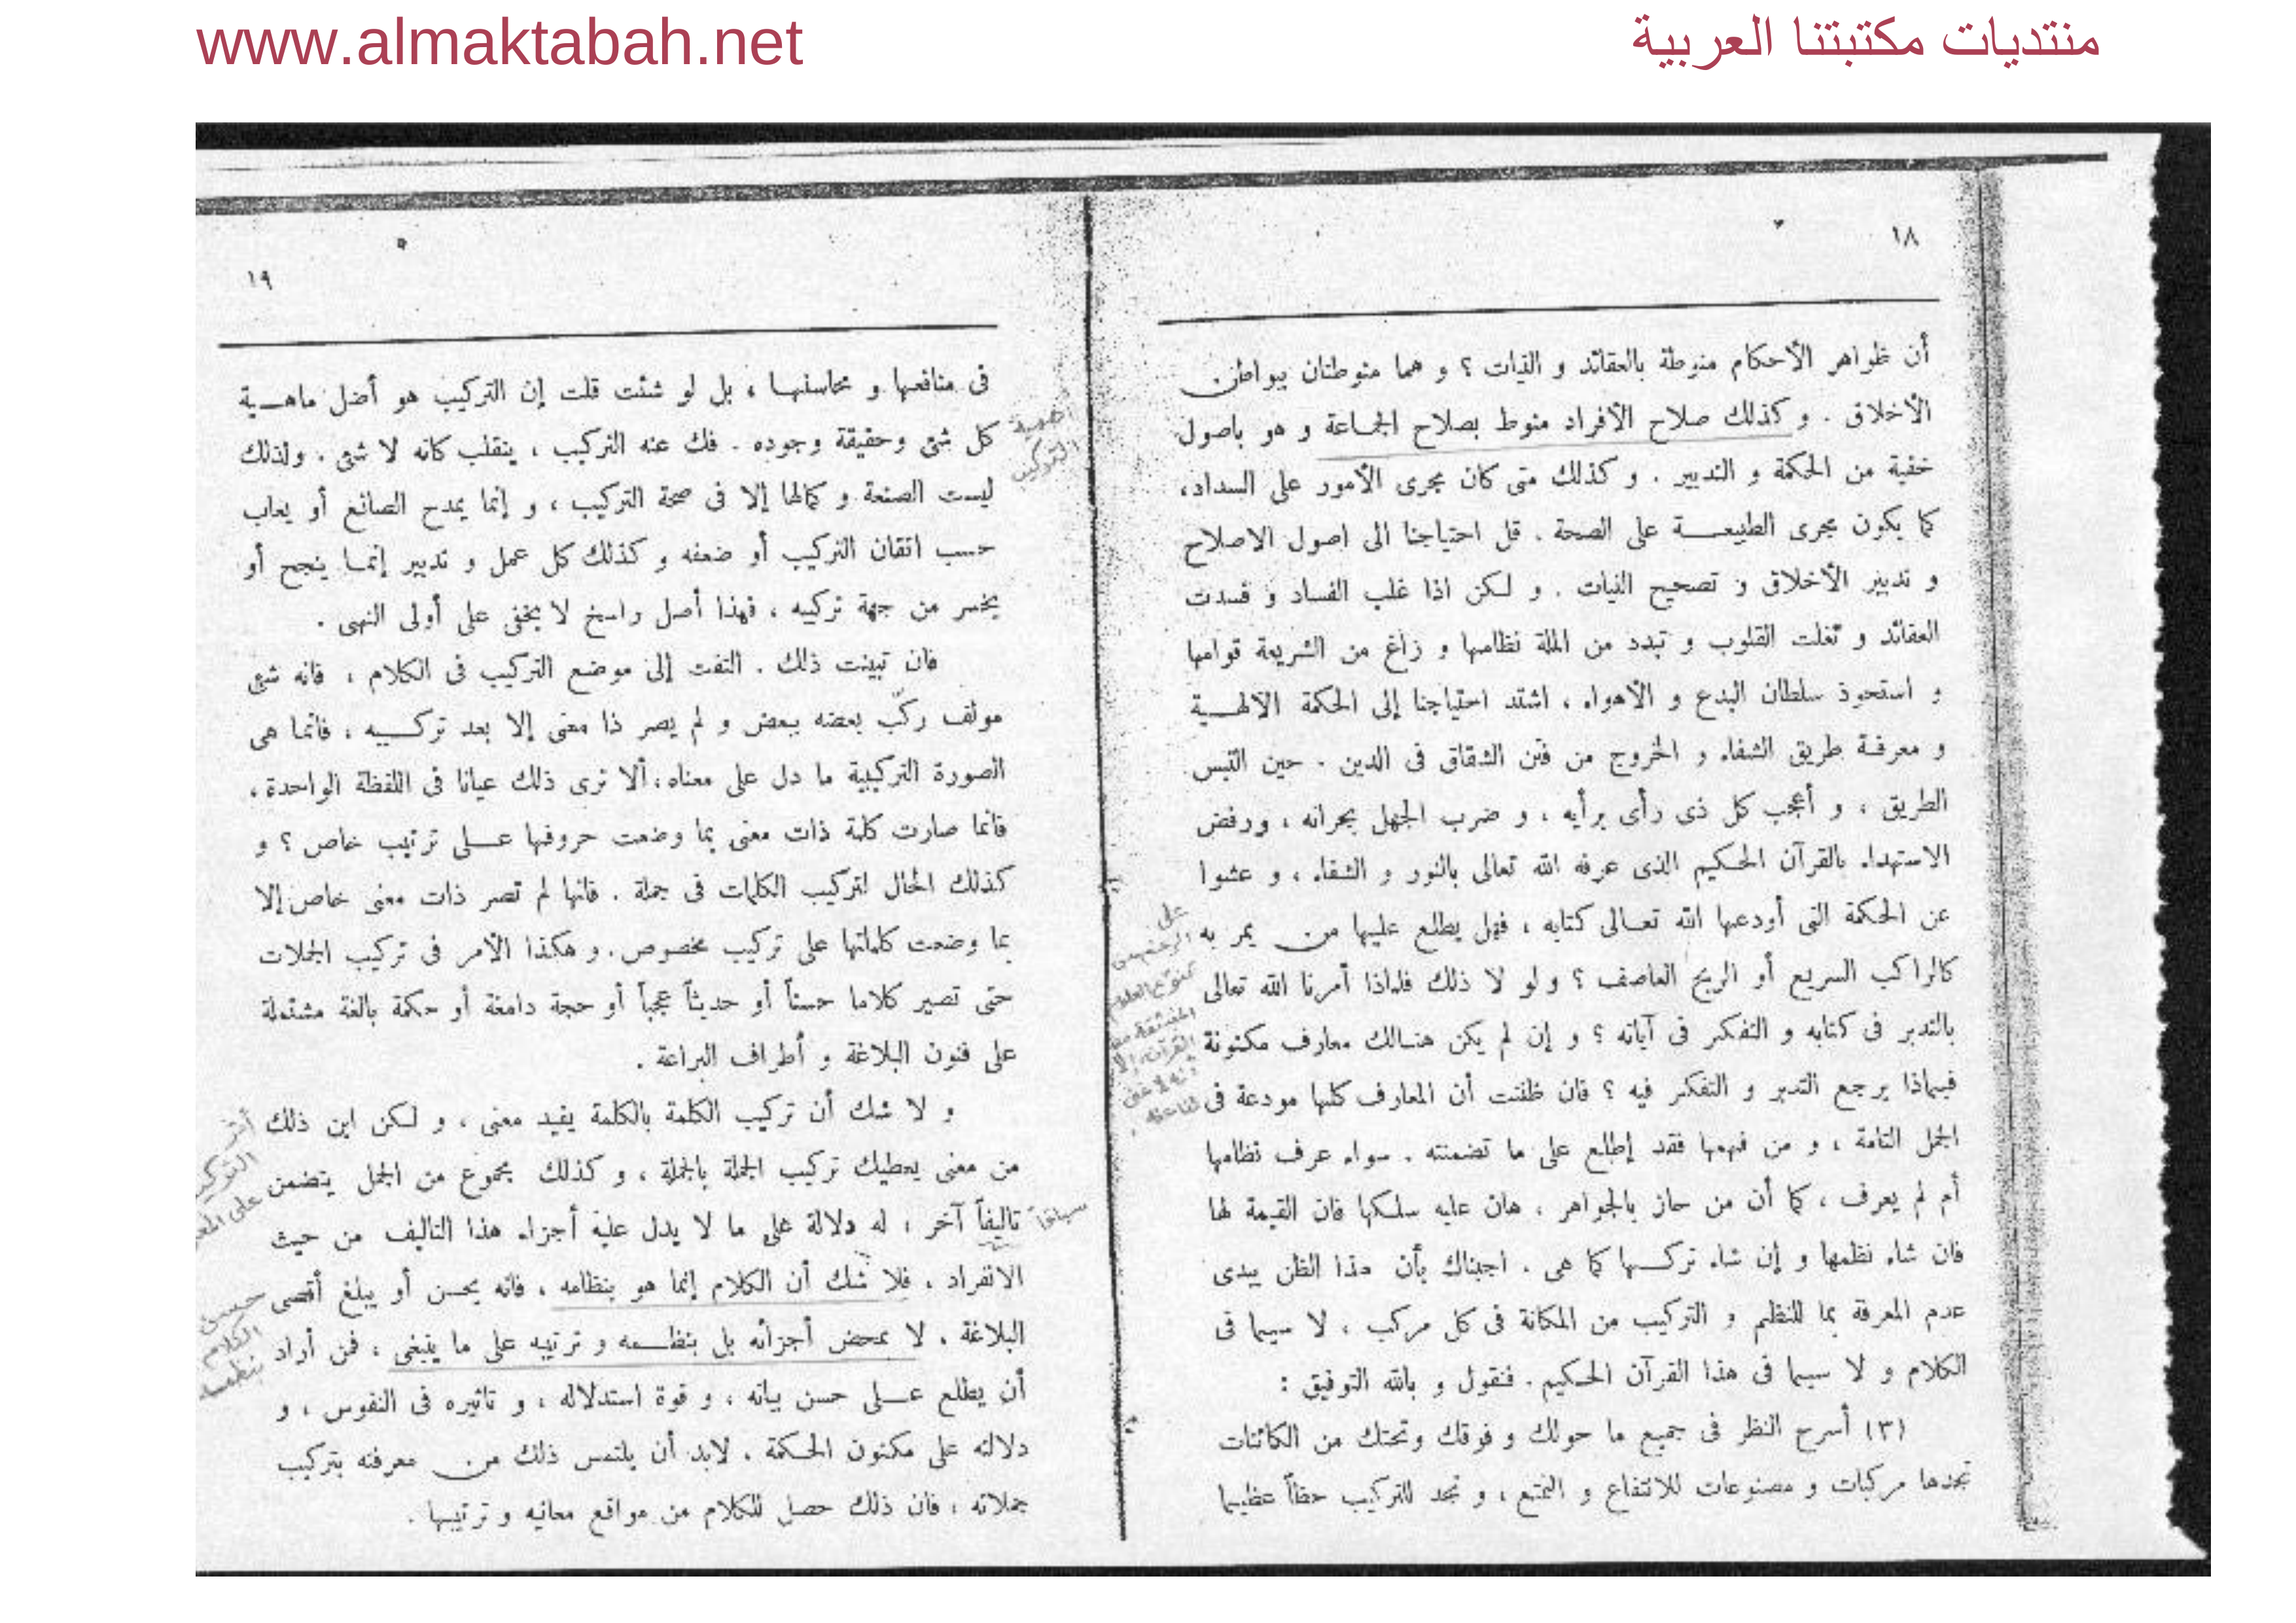 www.almaktabah.net
منتديات مكتبتنا العربية
١٨
أن ظواهر الأحكام منوطة بالعقائد و النيات ؟ و هما منوطتان ببواطن
الأخلاق . و كذلك صلاح الأفراد منوط بصلاح الجماعة و هو باصول
خفية من الحكمة و التدبير . و كذلك متى كان مجرى الأمور على السداد،
كما يكون مجرى الطبيعة على الصحة . قل احتياجنا الى اصول الاصلاح
و تدبير الأخلاق و تصحيح النيات . و لكن اذا غلب الفساد و فسدت
العقائد و نغلت القلوب و تبدد من الملة نظامها و زاغ من الشريعة قوامها
و استحوذ سلطان البدع و الأهواء ، اشتد احتياجنا إلى الحكمة الالهية
و معرفة طريق الشفاء و الخروج من فتن الشقاق فى الدين . حين التبس
الطريق ، و أعجب كل ذى رأى برأيه ، و ضرب الجهل بجرانه ، ورفض
الاستهداء بالقرآن الحكيم الذى عرفه الله تعالى بالنور و الشفاء ، و عشوا
عن الحكمة التى أودعها الله تعالى كتابه ، فهل يطلع عليها من يمر به
كالراكب السريع أو الريح العاصف ؟ ولو لا ذلك فلماذا أمرنا الله تعالى
بالتدبر فى كتابه و التفكر فى آياته ؟ و إن لم يكن هنالك معارف مكنونة
فيماذا يرجع التدبر و التفكر فيه ؟ فان ظننت أن المعارف كلها مودعة فى
الجمل التامة ، و من فهمها فقد إطلع على ما تضمنته . سواء عرف نظامها
أم لم يعرف ، كما أن من حاز بالجواهر ، هان عليه سلكها فان القيمة لها
فان شاء نظمها و إن شاء تركها كما هى . اجبناك بأن هذا الظن يبدى
عدم المعرفة بما للنظم و التركيب من المكانة فى كل مركب ، لا سيما فى
الكلام و لا سيما فى هذا القرآن الحكيم . فنقول و بالله التوفيق :
(٣) أسرح النظر فى جميع ما حولك و فوقك وتحتك من الكائنات
تجدها مركبات و مصنوعات للانتفاع و التمتع ، و تجد للتركيب حظاً عظيما
على
القرآن إلا
١٩
فى منافعها و محاسنها ، بل لو شئت قلت إن التركيب هو أصل ماهية
كل شئ وحقيقة وجوده . فك عنه التركيب ، ينقلب كانه لا شئ . ولذلك
ليست الصنعة و كمالها إلا فى صحة التركيب ، و إنما يمدح الصانع أو يعاب
حسب اتقان التركيب أو ضعفه و كذلك كل عمل و تدبير إنما ينجح أو
يخسر من جهة تركيبه ، فهذا أصل راسخ لا يخفى على أولى النهى .
فان تبينت ذلك . التفت إلى موضع التركيب فى الكلام ، فانه شئ
مولف ركّب بعضه ببعض و لم يصر ذا معنى إلا بعد تركيبه ، فانما هى
الصورة التركيبية ما دل على معناه ، ألا ترى ذلك عيانا فى اللفظة الواحدة ،
فانما صارت كلمة ذات معنى بما وضعت حروفها على ترتيب خاص ؟ و
كذلك الحال لتركيب الكلمات فى جملة . فانها لم تصر ذات معنى خاص إلا
بما وضعت كلماتها على تركيب مخصوص . و هكذا الأمر فى تركيب الجملات
حتى تصير كلاما حسناً أو حديثاً عجباً أو حجة دامغة أو حكمة بالغة مشتملة
على فنون البلاغة و أطراف البراعة .
و لا شك أن تركيب الكلمة بالكلمة يفيد معنى ، و لكن اين ذلك
من معنى يعطيك تركيب الجملة بالجملة ، و كذلك مجموع من الجمل يتضمن
تاليفاً آخر ، له دلالة على ما لا يدل عليه أجزاء هذا التاليف من حيث
الانفراد . فلا شك أن الكلام إنما هو بنظامه ، فانه يحسن أو يبلغ أقصى
البلاغة . لا بمحض أجزائه بل بنظمه و ترتيبه على ما ينبغى ، فمن أراد
أن يطلع على حسن بيانه ، و قوة استدلاله ، و تاثيره فى النفوس ، و
دلالته على مكنون الحكمة . لابد أن يلتمس ذلك من معرفته بتركيب
جملاته ، فان ذلك حصل للكلام من مواقع معانيه و ترتيبها .
أهمية
التركيب
سياقاً
أثر
التركيب
على المعنى
حسن
الكلام
بنظمه